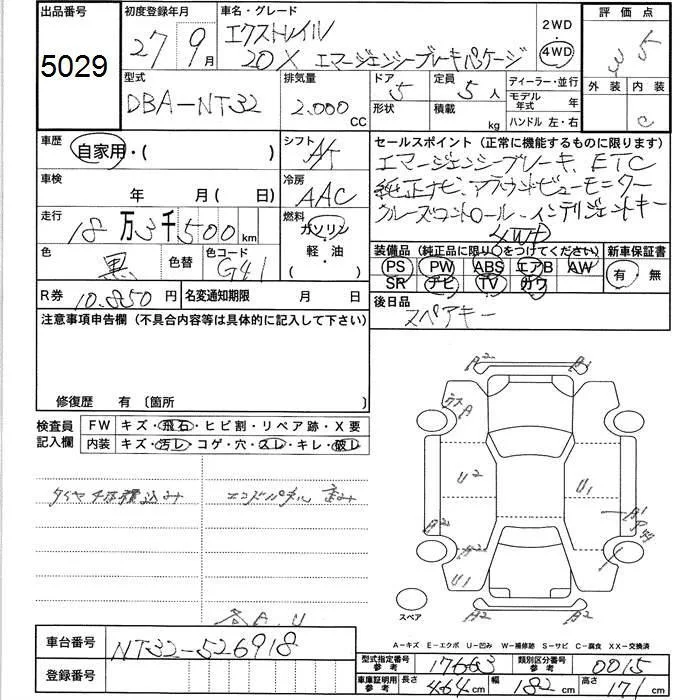 出品番号 初度登録年月 車名・グレード 評価点
5029 27年9月 エクストレイル 2WD
20X エマージェンシーブレーキパッケージ 4WD
外装 内装 C
型式 排気量 ドア 定員 ディーラー・並行
DBA-NT32 2.000CC 5 5人 モデル年式 年
形状 積載 kg ハンドル 左・右
車歴 自家用・( ) シフト AT セールスポイント (正常に機能するものに限ります)
エマージェンシーブレーキ、ETC
車検 年 月( 日) 冷房 AAC 純正ナビ、アラウンドビューモニター
走行 18万3千500km 燃料 ガソリン クルーズコントロール、インテリジェントキー
4WD
色 黒 色替 色コード G41 軽・油 ・( )
装備品 (純正品に限り○をつけてください) 新車保証書
PS PW ABS エアB AW 有 無
SR ナビ TV カワ
R券 10.850円 名変通知期限 月 日 後日品
スペアキー
注意事項申告欄 (不具合内容等は具体的に記入して下さい)
修復歴 有 〔箇所
検査員記入欄 FW キズ・飛石・ヒビ割・リペア跡・X要
内装 キズ・汚レ・コゲ・穴・スレ・キレ・破レ
タイヤ4本積込み エンドパネル 歪み
A2 A2
A
U2 U1
A2 A1
U1
A2 A2
スペア
各A.U
A-キズ E-エクボ U-凹み W-補修跡 S-サビ C-腐食 XX-交換済
車台番号 NT32-526918
型式指定番号参考 17663 類別区分番号参考 0015
登録番号
車庫証明用参考 長さ 464cm 幅 182cm 高さ 171cm